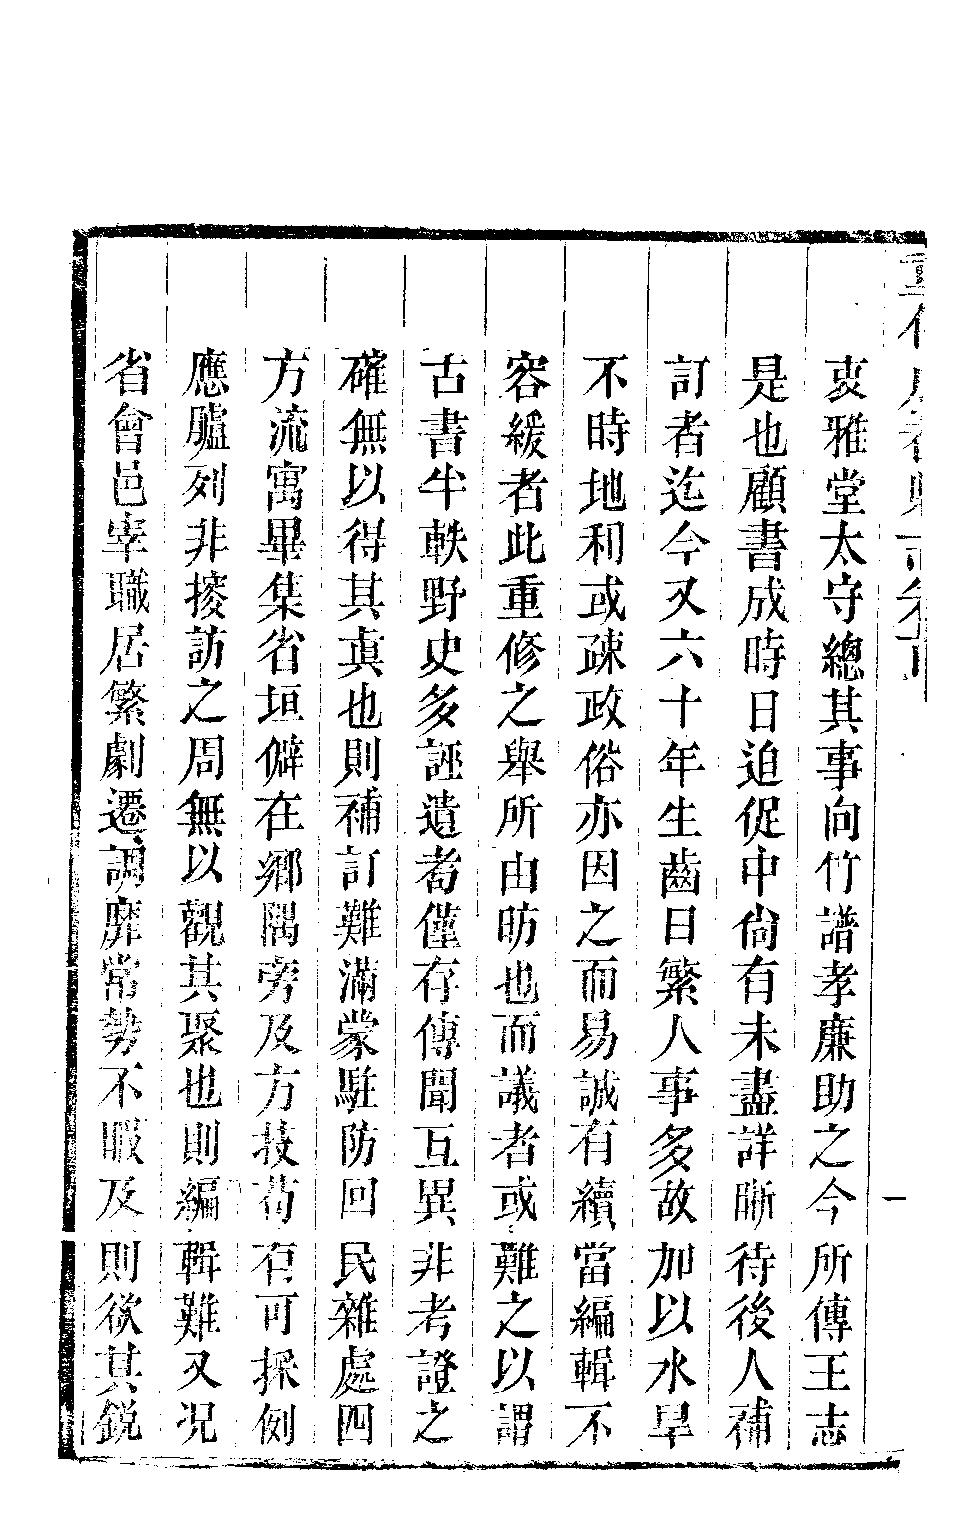 衷雅堂太守總其事向竹譜孝廉助之今所傳王志
是也顧書成時日迫促中尙有未盡詳晰待後人補
訂者迄今又六十年生齒日繁人事多故加以水旱
不時地利或疎政俗亦因之而易誠有續當編輯不
容緩者此重修之舉所由昉也而議者或難之以謂
古書半軼野史多誣遺者僅存傳聞互異非考證之
確無以得其眞也則補訂難滿蒙駐防回民雜處四
方流寓畢集省垣僻在鄉隅旁及方技苟有可採例
應臚列非搜訪之周無以觀其聚也則編輯難又况
省會邑宰職居繁劇遷調靡常勢不暇及則欲其銳
一